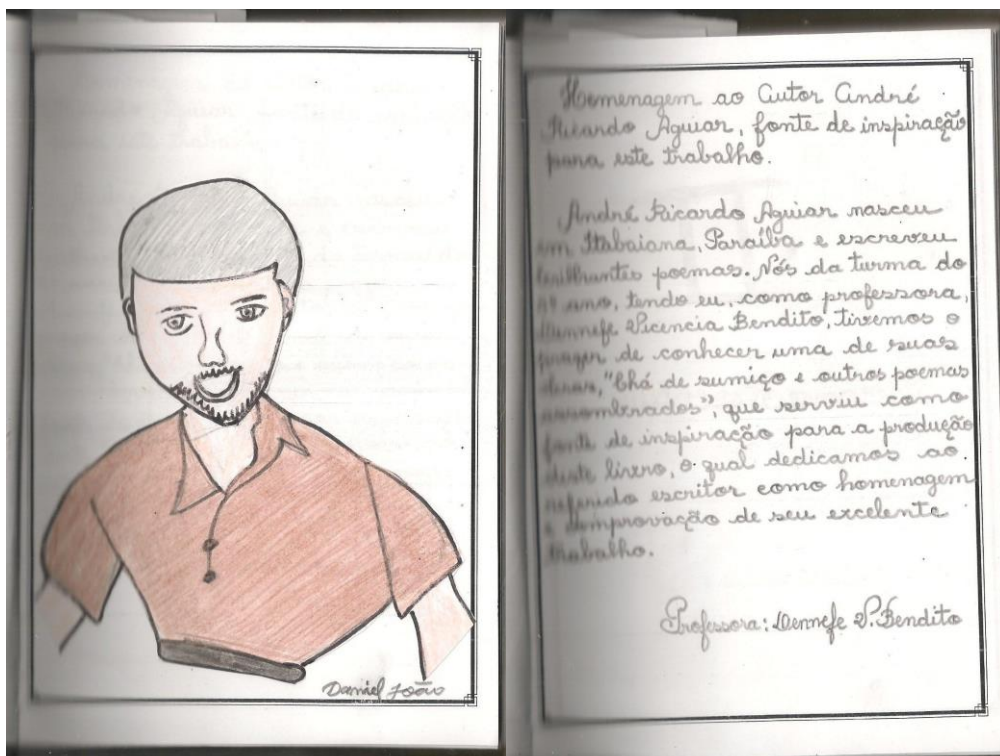 Daniel João
Homenagem ao Autor André
Ricardo Aguiar, fonte de inspiração
para este trabalho.
André Ricardo Aguiar nasceu
em Itabaiana, Paraíba e escreveu
brilhantes poemas. Nós da turma do
ano, tendo eu, como professora,
Vicencia Bendito, tivemos o
prazer de conhecer uma de suas
obras, "Chá de sumiço e outros poemas
assombrados", que serviu como
fonte de inspiração para a produção
deste livro, o qual dedicamos ao
referido escritor como homenagem
e comprovação de seu excelente
trabalho.
Professora: V. Bendito